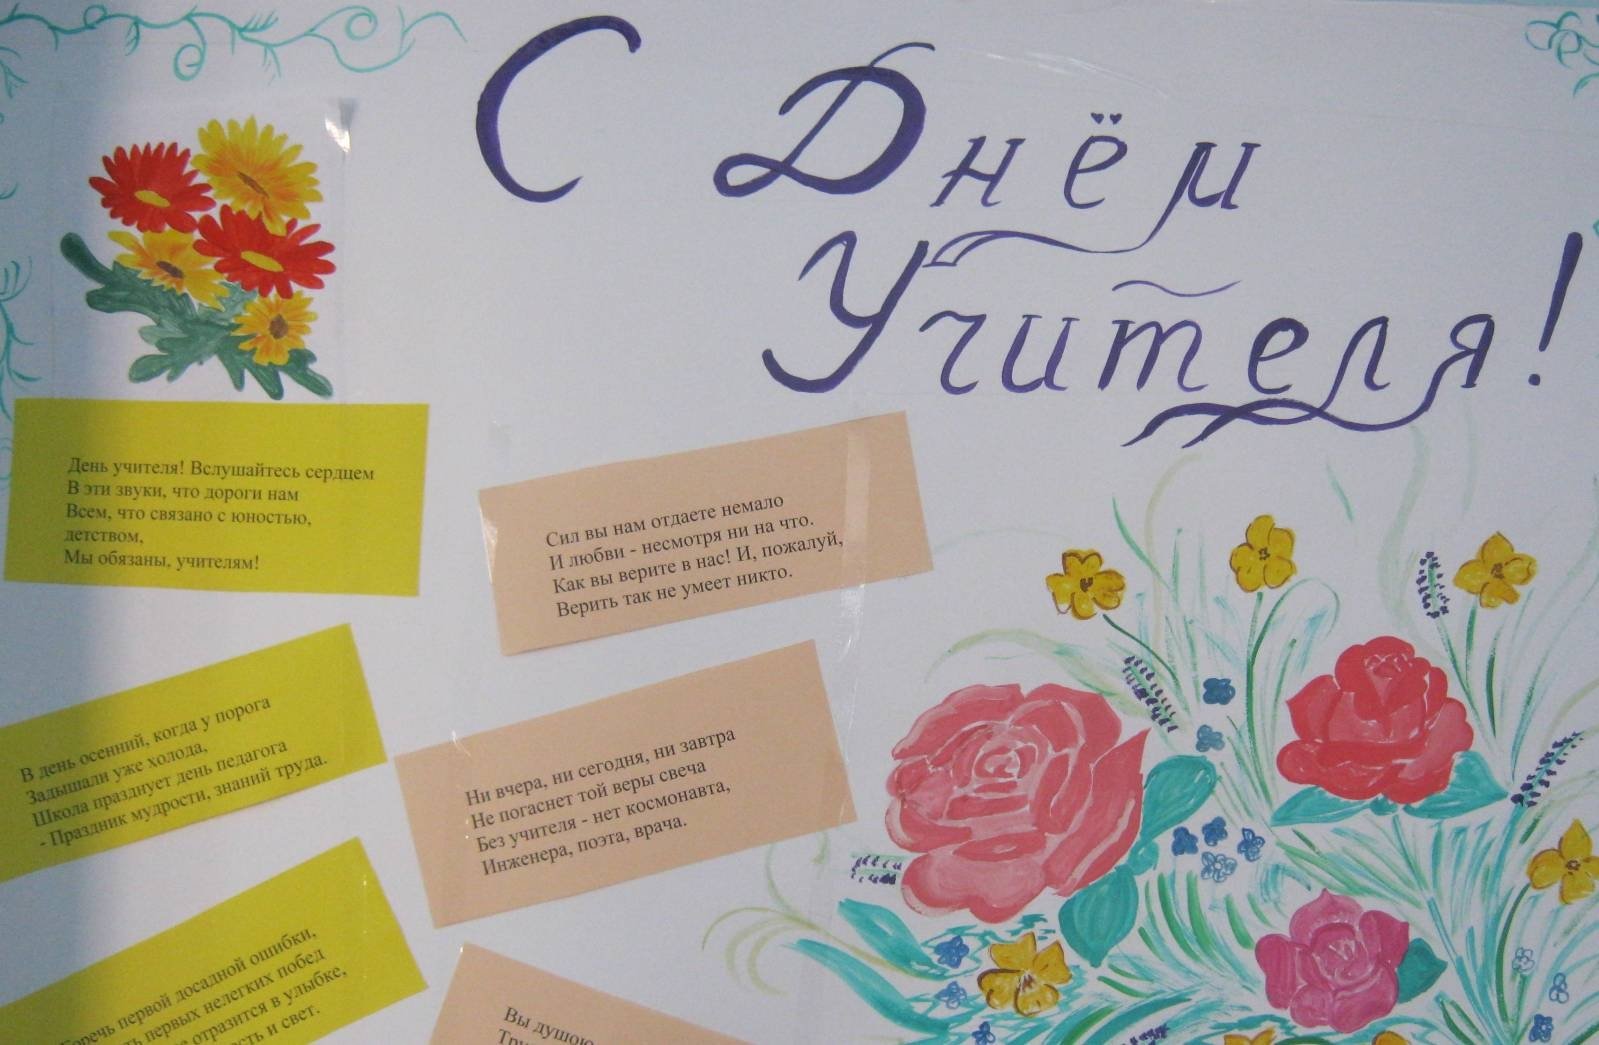 С Днём
Учителя!
День учителя! Вслушайтесь сердцем
В эти звуки, что дороги нам
Всем, что связано с юностью,
детством,
Мы обязаны, учителям!
Сил вы нам отдаете немало
И любви - несмотря ни на что.
Как вы верите в нас! И, пожалуй,
Верить так не умеет никто.
В день осенний, когда у порога
Задышали уже холода,
Школа празднует день педагога
- Праздник мудрости, знаний труда.
Ни вчера, ни сегодня, ни завтра
Не погаснет той веры свеча
Без учителя - нет космонавта,
Инженера, поэта, врача.
Горечь первой досадной ошибки,
первых нелегких побед
отразится в улыбке,
и свет.
Вы душою